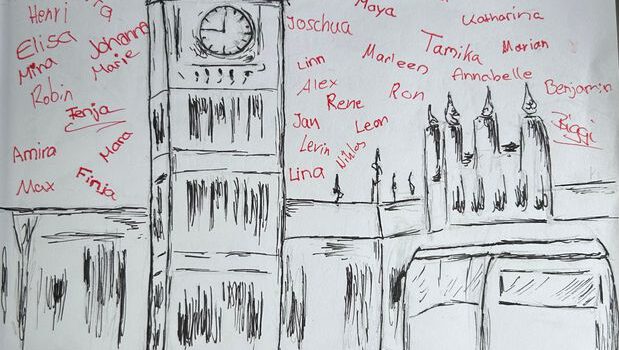 Henri
Elisa
Johanna
Mina
Marie
Robin
Jenja
Mara
Amira
Finja
Max
Maya
Joschua
Katharina
Linn
Marleen
Tamika
Marian
Alex
Annabelle
Rene
Ron
Benjamin
Jan
Leon
Biggi
Levin
Niklas
Lina